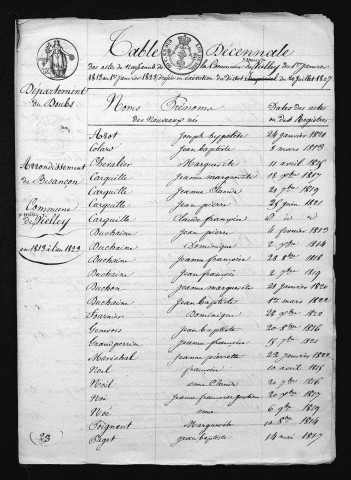 Table Décennale
des actes de naissance de la Commune de Vieilley du 1er janvier
1813 au 1er janvier 1823 dressée en exécution du décret impérial du 20 juillet 1807
Département
du Doubs
Arrondissement
de Besançon
Commune
de Vieilley
an 1813 à l'an 1823
Noms Prénoms
des Nouveaux nés
Dates des actes
ou des Registres
joseph hypolite 24 janvier 1820
jean baptiste 8 mars 1813
Chevalier Marguerite 11 avril 1816
Carquille jeanne marguerite 18 7bre 1817
Carquille jeanne Claude 20 7bre 1819
Carquille jean pierre 26 juin 1821
Carquille Claude françoise
Duchaine jean pierre 4 février 1813
Duchaine Dominique 2 7bre 1814
Duchaine jeanne françoise 28 8bre 1816
Duchaine jean françois 2 7bre 1819
Duchon jeanne marguerite 21 janvier 1820
Duchaine jean baptiste 12 mars 1822
Fournier Dominique 28 9bre 1820
jean baptiste 20 8bre 1816
Grandperrin jeanne françoise 15 7bre 1821
Maréchal jeanne pierrette 23 janvier 1822
Noel françoise 10 avril 1815
Noël anne Claude 20 7bre 1816
Noé 20 9bre 1817
Noé anne 6 9bre 1819
Marguerite 10 8bre 1814
Piget jean baptiste 14 mai 1817
23